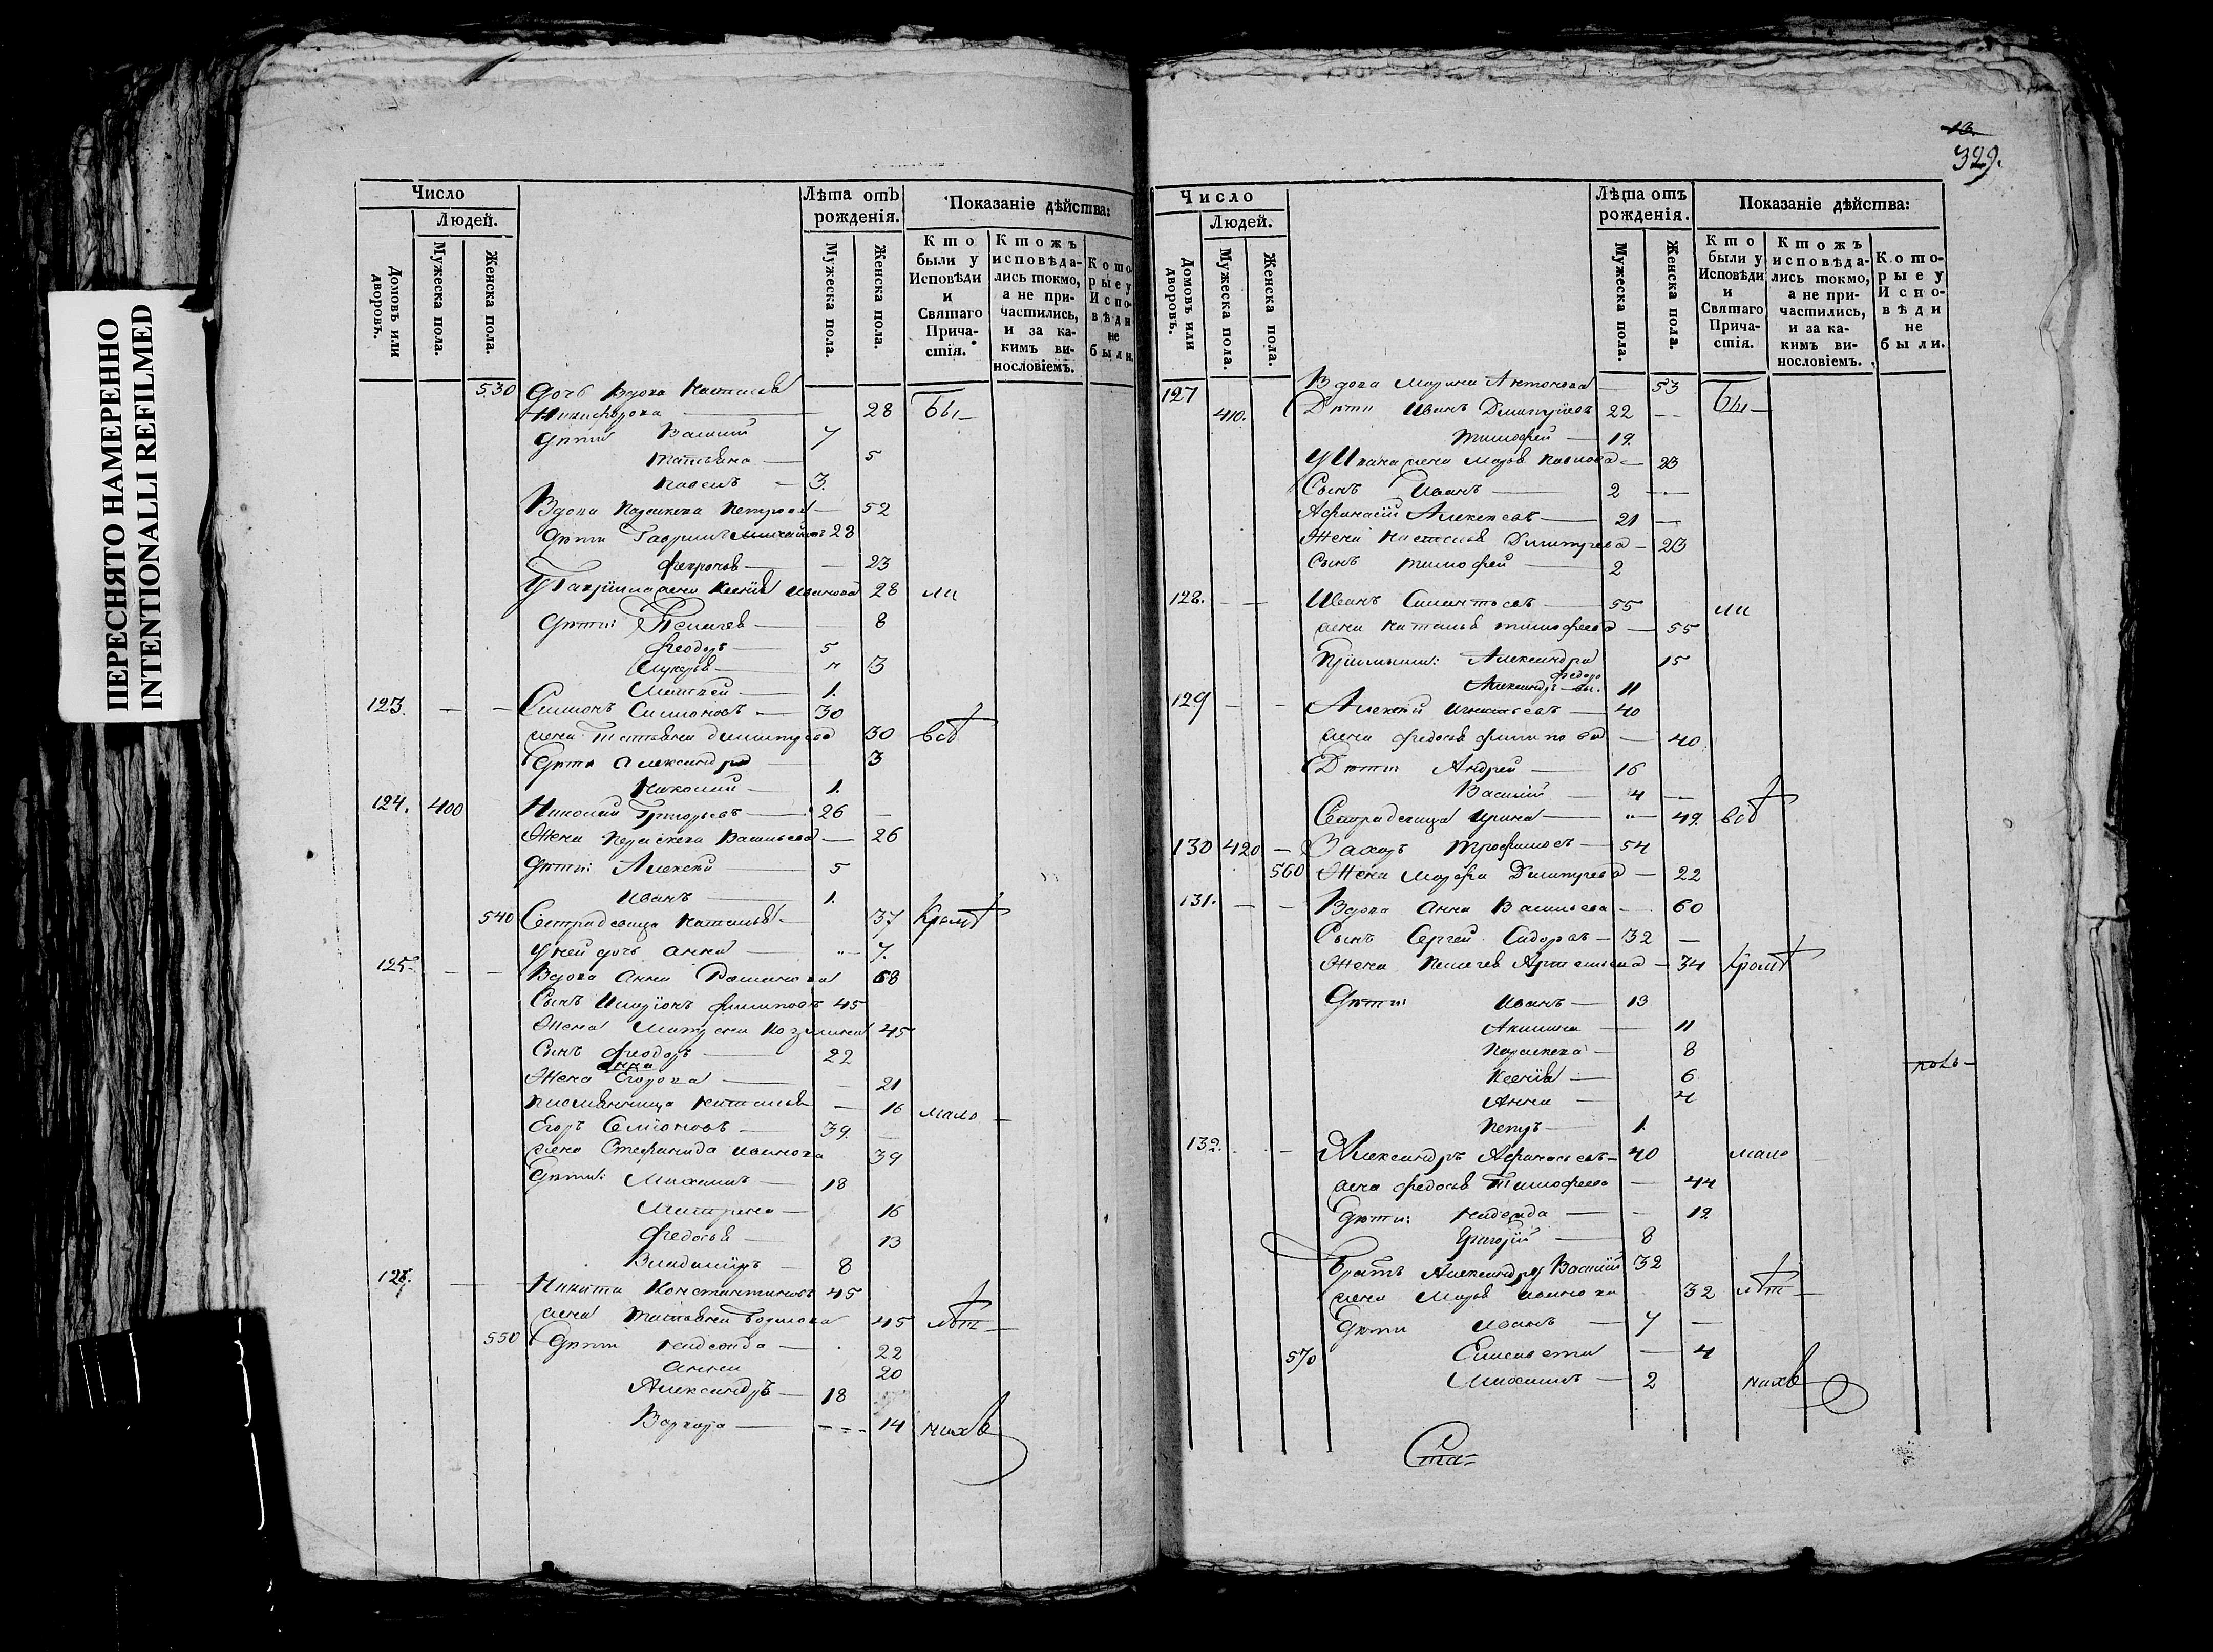 ПЕРЕСНЯТО НАМЕРЕННО
INTENTIONALLI REFILMED
Число
Людей.
Домовъ или дворовъ.
Мужеска пола.
Женска пола.
Лѣта отъ рожденія.
Мужеска пола.
Женска пола.
Показаніе дѣйства:
Кто были у Исповѣди и Святаго Причастія.
Ктожъ исповѣдались токмо, а не причастились, и за какимъ винословіемъ.
Которые у Исповѣди не были.
530 Дочь Вдова Настасья
Никифорова 28 Бы-
Дѣти Василій 7
Татьяна 5
Павелъ 3.
Вдова Парасковья Петрова 52
Дѣти Гавріилъ Михайловъ 28
Февронья 23
У Гавріила жена Ксенія Иванова 28 ли
Дѣти: Пелагея 8
Феодоръ 5
Лукерья 3
Матвей 1.
123. Симионъ Симионовъ 30
жена Татьяна Димитрева 30 всѣ
Дѣти Александра 3
Николай 1.
124. 400 Николай Григорьевъ 26
Жена Параскева Васильева 26
Дѣти: Алексѣй 5
Иванъ 1.
540 Сотрадевица Наталья 37 Кромѣ
У ней дочь Анна 7.
125. Вдова Анна Романова 68
Сынъ Иларіонъ Филиповъ 45
Жена Матрена Козмина 45
Сынъ Феодоръ 22
Анна
Жена Егорова 21
племянница Наталья 16 мало
Егоръ Семіоновъ 39.
жена Стефанида Иванова 39
Дѣти: Михаилъ 18
Матрена 16
Федосья 13
Владиміръ 8
126. Никита Константиновъ 45
жена Татьяна 45 лѣт-
550 Дѣти Надежда 22
Анна 20
Александръ 18
Варвара 14 нихъ
13.
329.
Число
Людей.
Домовъ или дворовъ.
Мужеска пола.
Женска пола.
Лѣта отъ рожденія.
Мужеска пола.
Женска пола.
Показаніе дѣйства:
Кто были у Исповѣди и Святаго Причастія.
Ктожъ исповѣдались токмо, а не причастились, и за какимъ винословіемъ.
Которые у Исповѣди не были.
127 Вдова Марина Антонова 53
410. Дѣти Иванъ Димитріевъ 22 Бы-
Тимофей 19.
У Ивана жена Марья Павлова 23
Сынъ Иванъ 2
Афанасій Алексеевъ 21
Жена Настасья Димитрева 23
Сынъ Тимофей 2
128. Иванъ Силантьевъ 55 ли
жена Наталья Тимофеева 55
Александра 15
Федоро
Александръ вы. 11
129 Алексѣй Игнатьевъ 40
жена Федосья Филипова 40
Дѣти: Андрей 16
Василій 4
Сотрадевица Ирина 49. всѣ
130 420 Захаръ Трофимовъ 54
560 Жена Марфа Димитрева 22
131. Вдова Анна Васильева 60
Сынъ Сергей Сидоровъ 32
Жена Пелагея Артемьева 34 Кромѣ
Дѣти: Иванъ 13
Акилина 11
Параскева 8
Ксенія 6
Анна 4
Петръ 1.
132. Александръ Афанасьевъ 40 мало
жена Федосья Тимофеева 44
Дѣти: Надежда 12
Григорій 8
Братъ Александру Василій 32
жена Марья Иванова 32 лѣт-
Дѣти Иванъ 7
570 Елисавета 4
Михаилъ 2 нихъ
Ста-